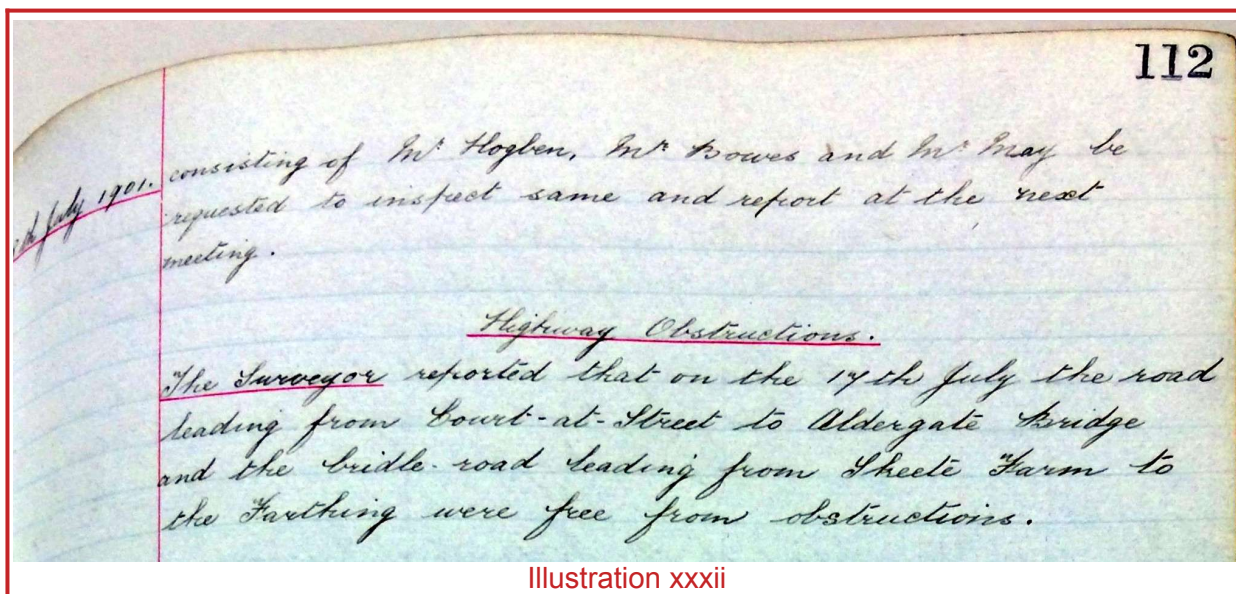 112
July 1901.
consisting of Mr Hogben, Mr Bowes and Mr May be
requested to inspect same and report at the next
meeting.
Highway Obstructions.
The Surveyor reported that on the 17th July the road
leading from Court-at-Street to Aldergate Bridge
and the bridle-road leading from Skeete Farm to
the Farthing were free from obstructions.
Illustration xxxii